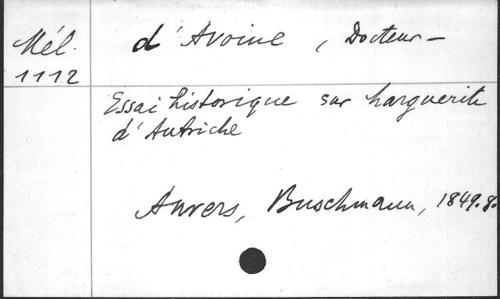 Mél.
1112
d'Avoine, Docteur -
Essai historique sur Marguerite
d'Autriche
Anvers, Buschmann, 1849. 8º